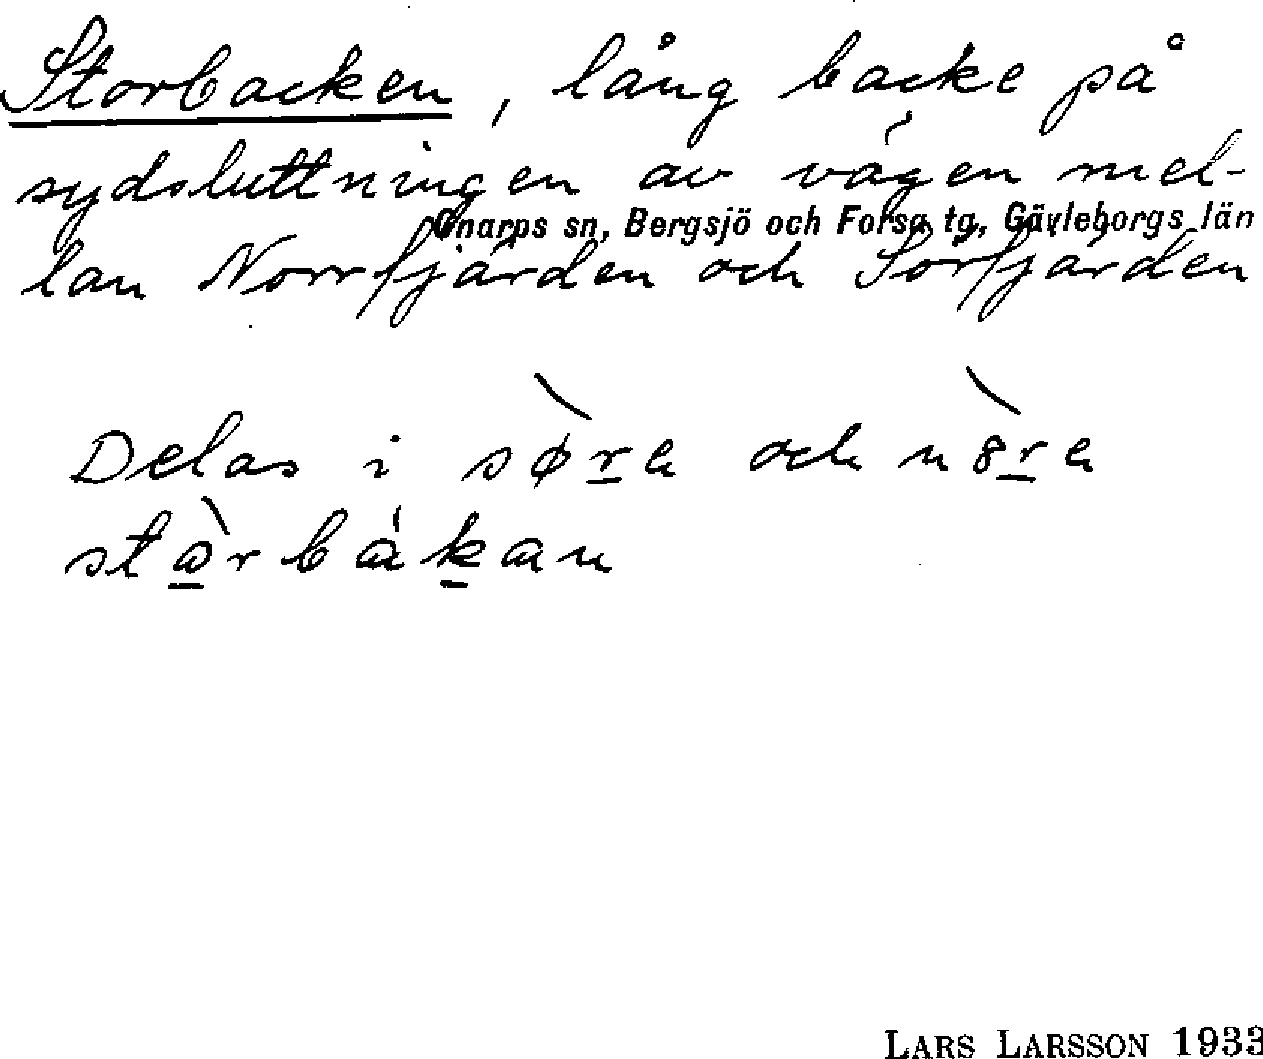 Storbacken, lång backe på
sydsluttningen av vägen mel-
Gnarps sn, Bergsjö och Forsa tg, Gävleborgs län
lan Norrfjärden och Sörfjärden
Delas i
och
LARS LARSSON 1933